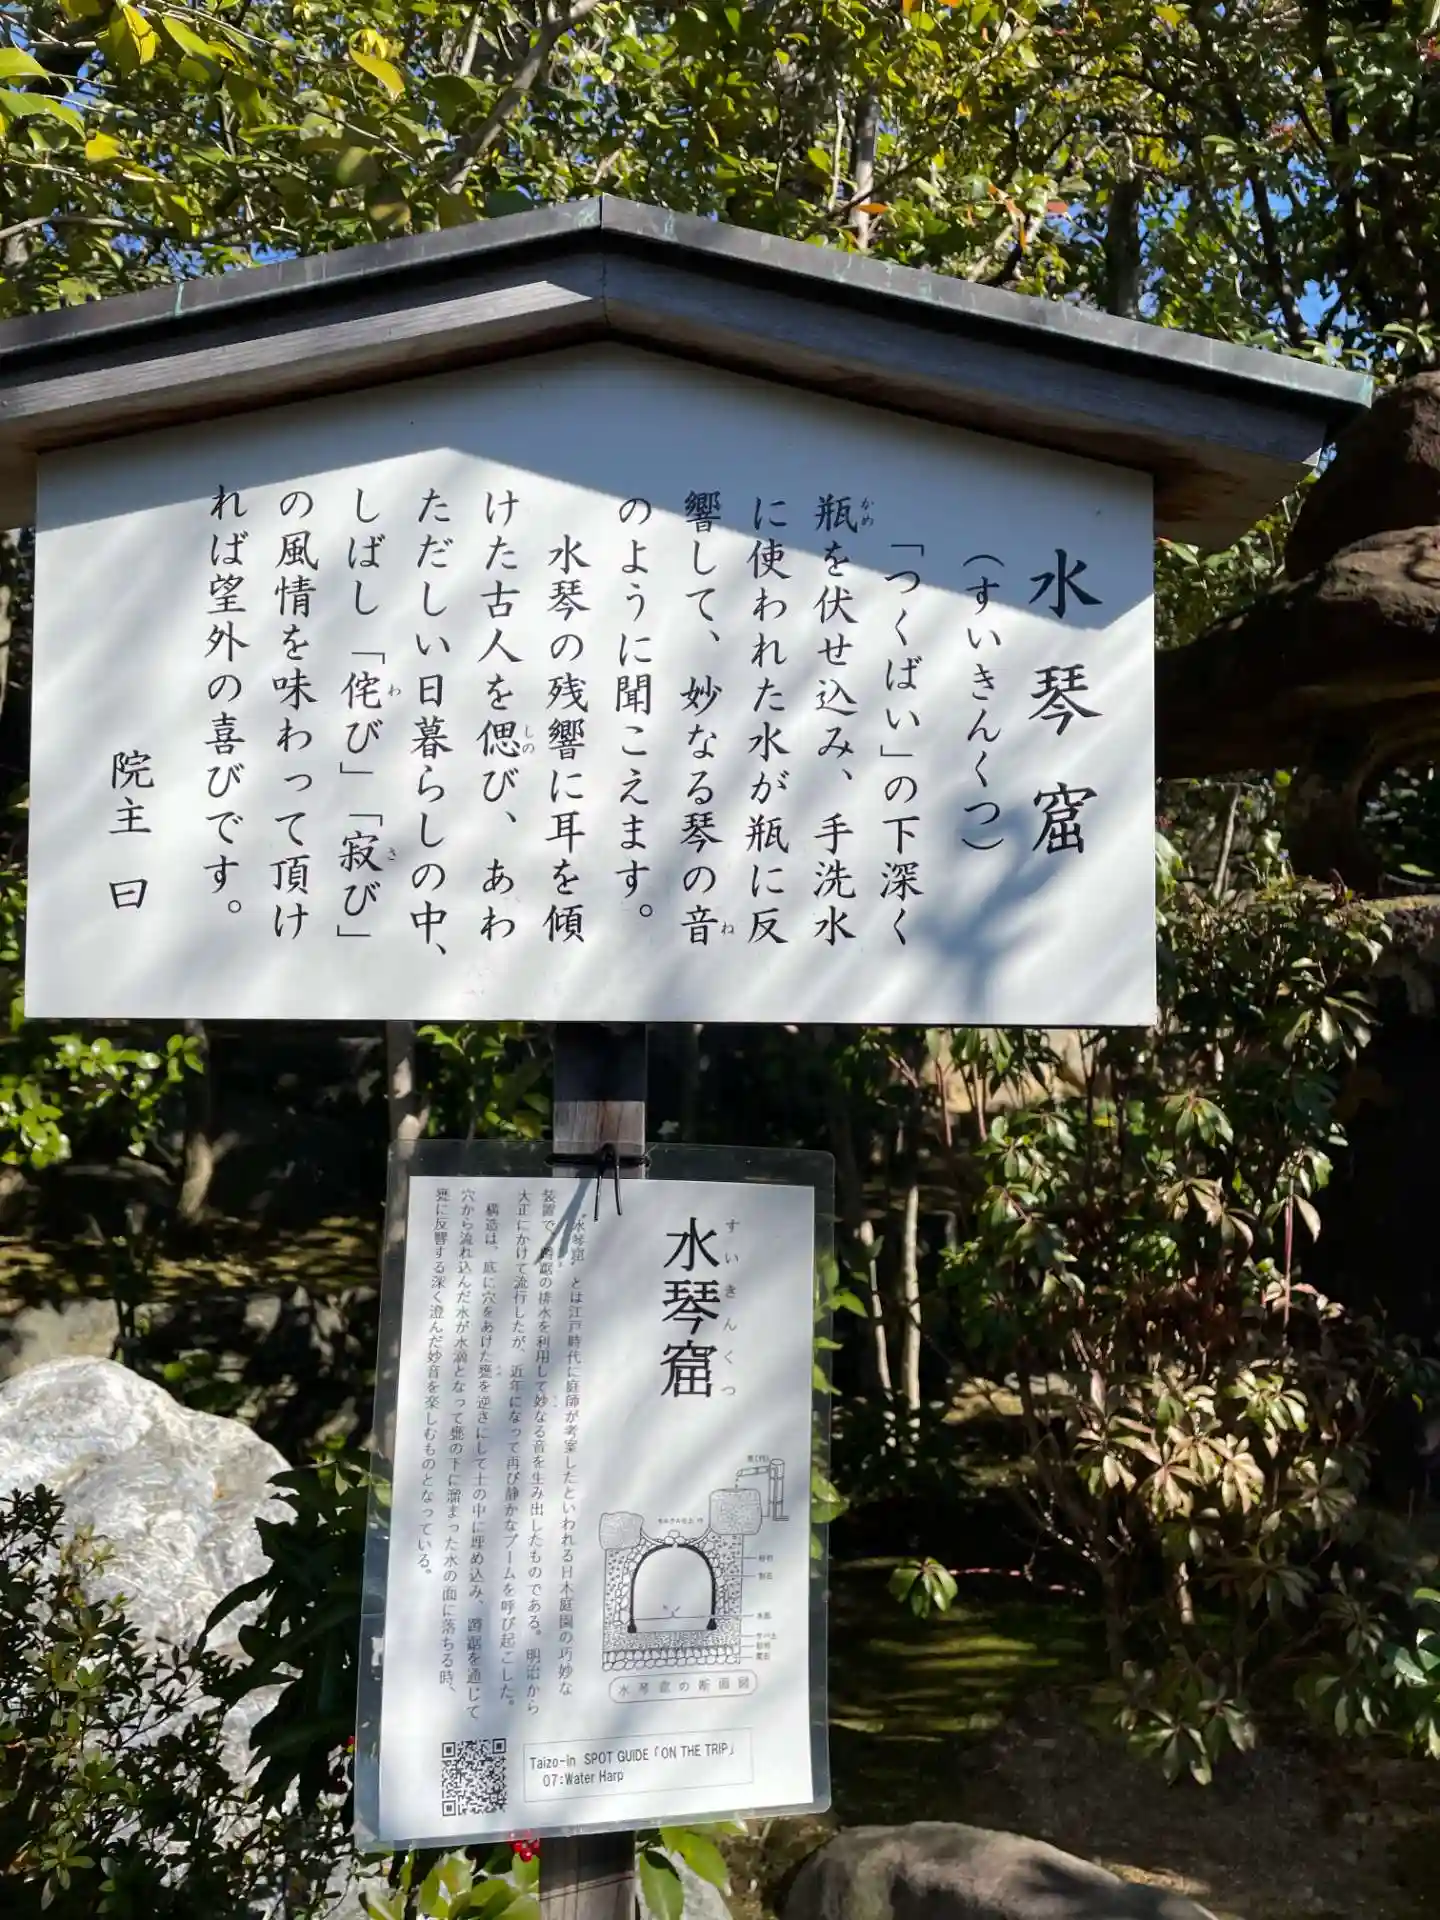 水琴窟
（すいきんくつ）
「つくばい」の下深く
瓶を伏せ込み、手洗水
に使われた水が瓶に反
響して、妙なる琴の音
のように聞こえます。
水琴の残響に耳を傾
けた古人を偲び、あわ
ただしい日暮らしの中、
しばし「侘び」「寂び」
の風情を味わって頂け
れば望外の喜びです。
院主 曰
かめ
ね
しの
わ
さ
水琴窟
すいきんくつ
“水琴窟”とは江戸時代に庭師が考案したといわれる日本庭園の巧妙な
装置で、蹲踞の排水を利用して妙なる音を生み出したものである。明治から
大正にかけて流行したが、近年になって再び静かなブームを呼び起こした。
構造は、底に穴をあけた甕を逆さにして土の中に埋め込み、蹲踞を通じて
穴から流れ込んだ水が水滴となって甕の下に溜まった水の面に落ちる時、
甕に反響する深く澄んだ妙音を楽しむものとなっている。
水琴窟の断面図
Taizo-in SPOT GUIDE「ON THE TRIP」
07:Water Harp